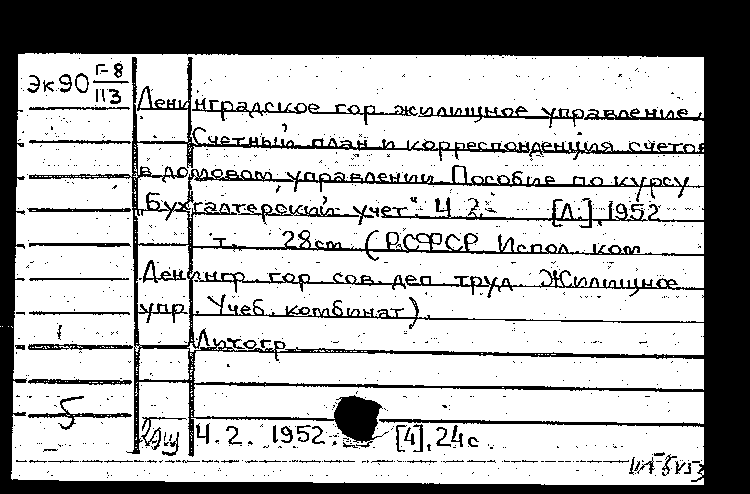 Эк90 Г-8
113
Ленинградское гор. жилищное управление.
Счетный план и корреспонденция счетов
в домовом управлении Пособие по курсу
"Бухгалтерский учет". Ч 2.- [Л.], 1952
т., 28см (РСФСР Испол. ком
Ленингр. гор. сов. деп труд. Жилищное
упр. Учеб. комбинат).
Литогр.
1
5
Ч. 2. 1952. [4], 24с